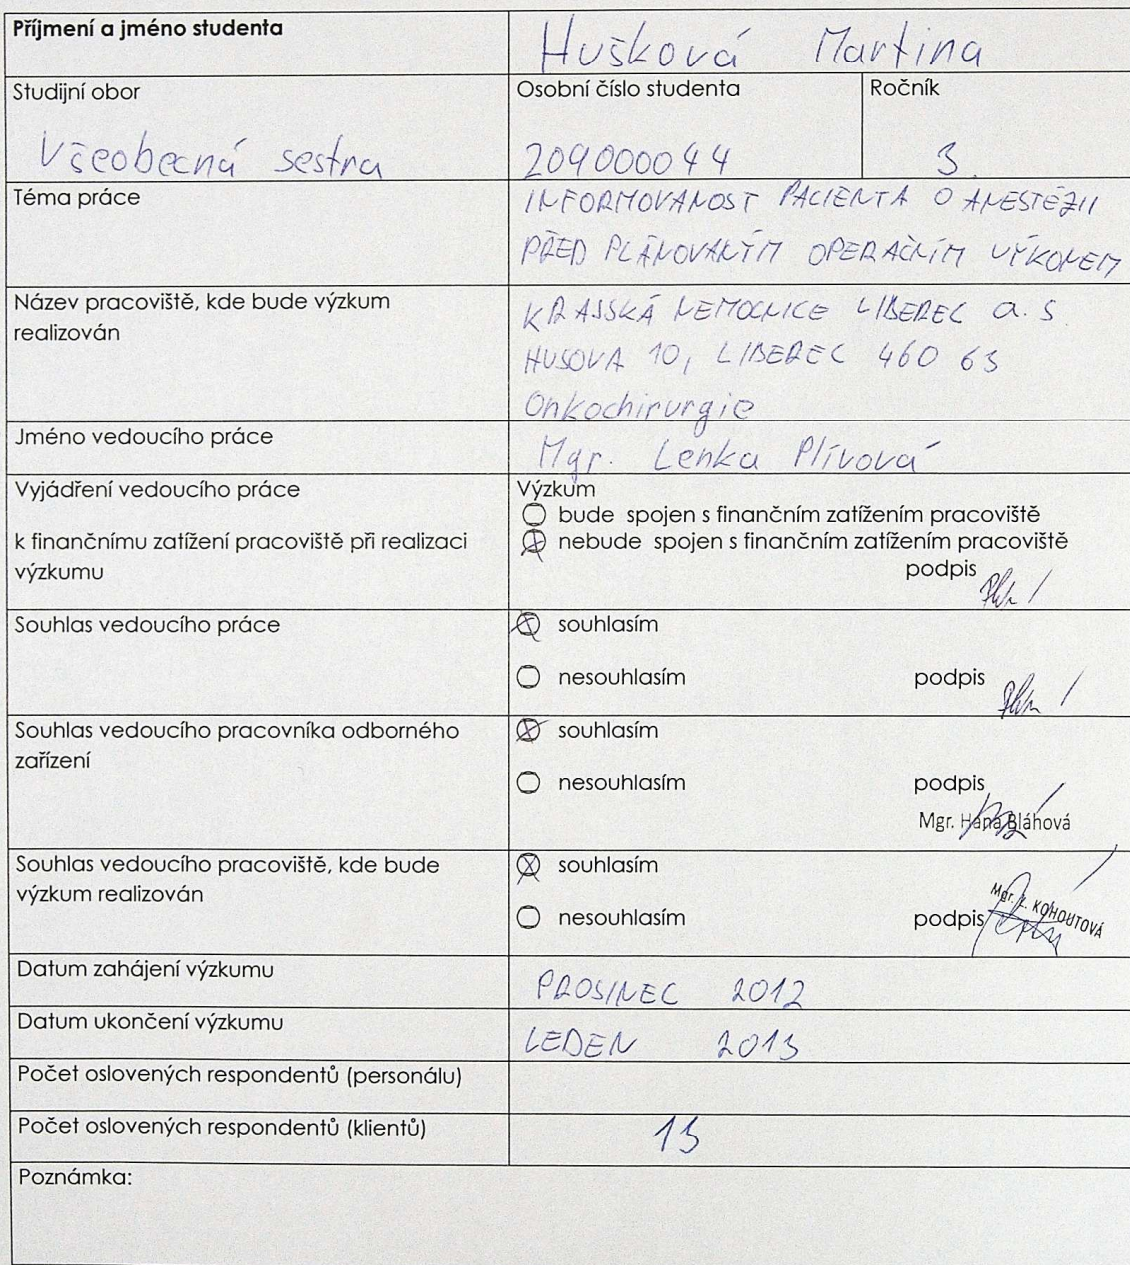 Příjmení a jméno studenta
Hušková Martina
Studijní obor
Všeobecná sestra
Osobní číslo studenta
209000044
Ročník
3.
Téma práce
INFORMOVANOST PACIENTA O ANESTÉZII
PŘED PLÁNOVANÝM OPERAČNÍM VÝKONEM
Název pracoviště, kde bude výzkum
realizován
KRAJSKÁ NEMOCNICE LIBEREC a.s.
HUSOVA 10, LIBEREC 460 63
Onkochirurgie
Jméno vedoucího práce
Mgr. Lenka Plívová
Vyjádření vedoucího práce
k finančnímu zatížení pracoviště při realizaci
výzkumu
Výzkum
bude spojen s finančním zatížením pracoviště
nebude spojen s finančním zatížením pracoviště
podpis
Souhlas vedoucího práce
souhlasím
nesouhlasím podpis
Souhlas vedoucího pracovníka odborného
zařízení
souhlasím
nesouhlasím podpis
Mgr. Hana Bláhová
Souhlas vedoucího pracoviště, kde bude
výzkum realizován
souhlasím
nesouhlasím podpis
Mgr. L. KOHOUTOVÁ
Datum zahájení výzkumu
PROSINEC 2012
Datum ukončení výzkumu
LEDEN 2013
Počet oslovených respondentů (personálu)
Počet oslovených respondentů (klientů)
13
Poznámka: